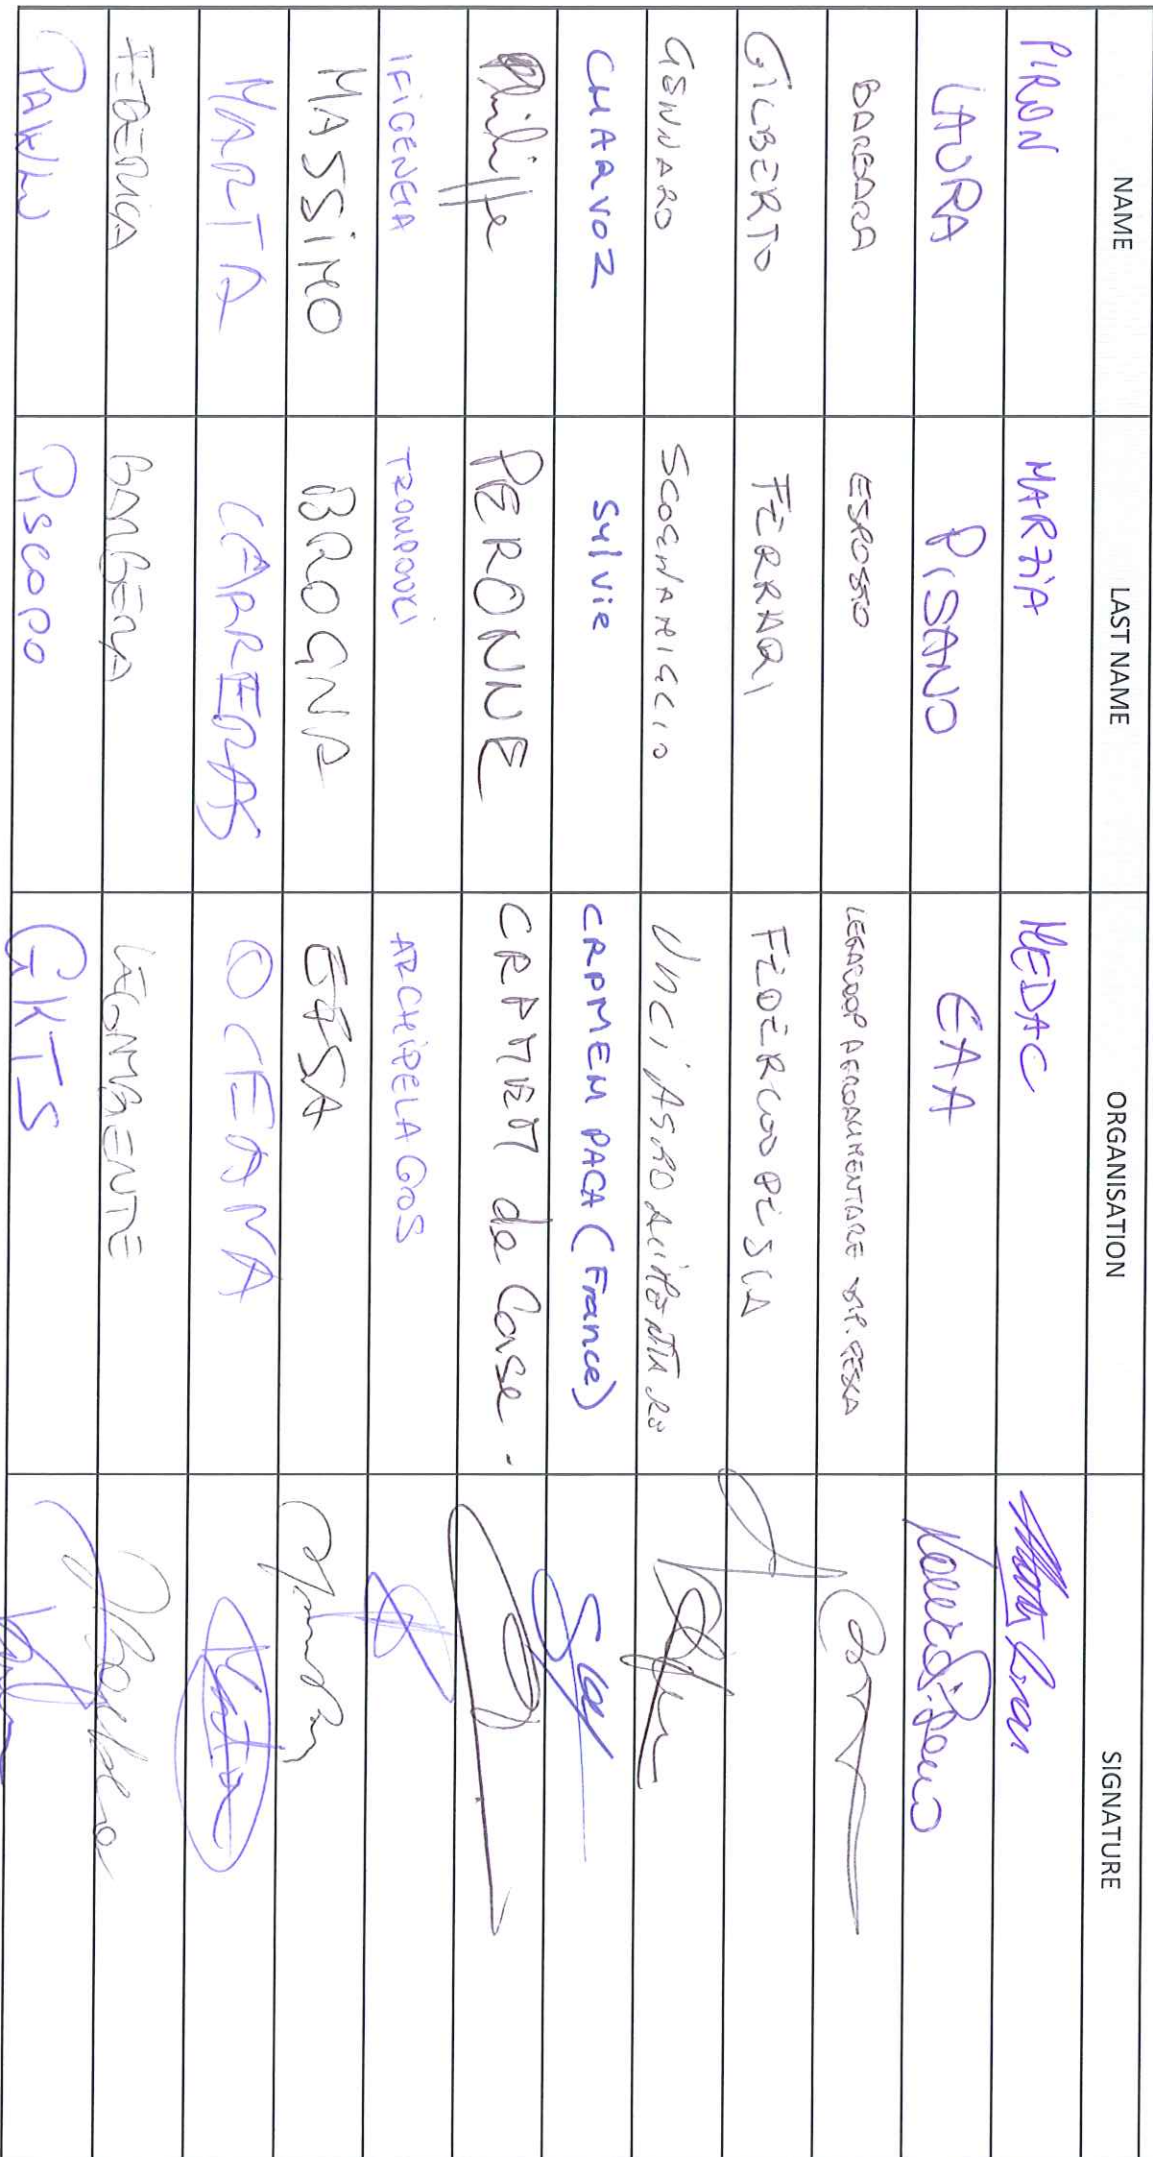 NAME LAST NAME ORGANISATION SIGNATURE
PIRON MARZIA MEDAC
LAURA PISANO EAA
BARBARA ESPOSTO LEGACOOP AGROALIMENTARE DIP. PESCA
GILBERTO FERRARI FEDERCOOPESCA
GENNARO SCOGNAMIGLIO UNCI AGROALIMENTARE
CHARVOZ Sylvie CRPMEM PACA (France)
Philippe PERONNE CRPMEM de Corse.
IFIGENEIA TZOMPOVKI ARCHIPELAGOS
MASSIMO BROGNA EFSA
MARTA CARRERAS OCEANA
FEDERICA BARBERA LEGAMBIENTE
Piscopo GKTS